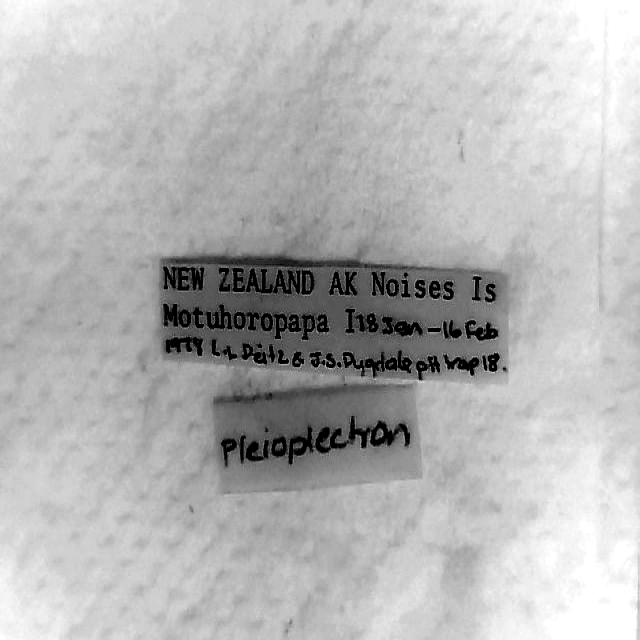 NEW ZEALAND AK Noises Is
Motuhoropapa I 18 Jan - 16 Feb
1978 L.L. Deitz & J.S. Dugdale pit trap 18.
Pleioplectron